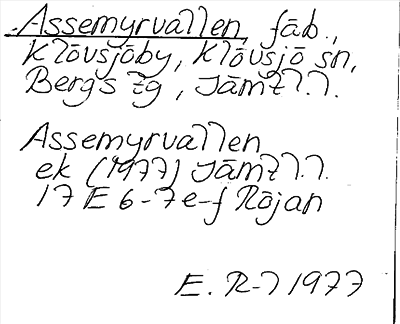 Assemyrvallen, fäb.,
Klövsjöby, Klövsjö sn,
Bergs tg, Jämtl.l.
Assemyrvallen
ek (1977) Jämtl.l.
17 E 6-7 e-f Röjan
E. R-l 1977